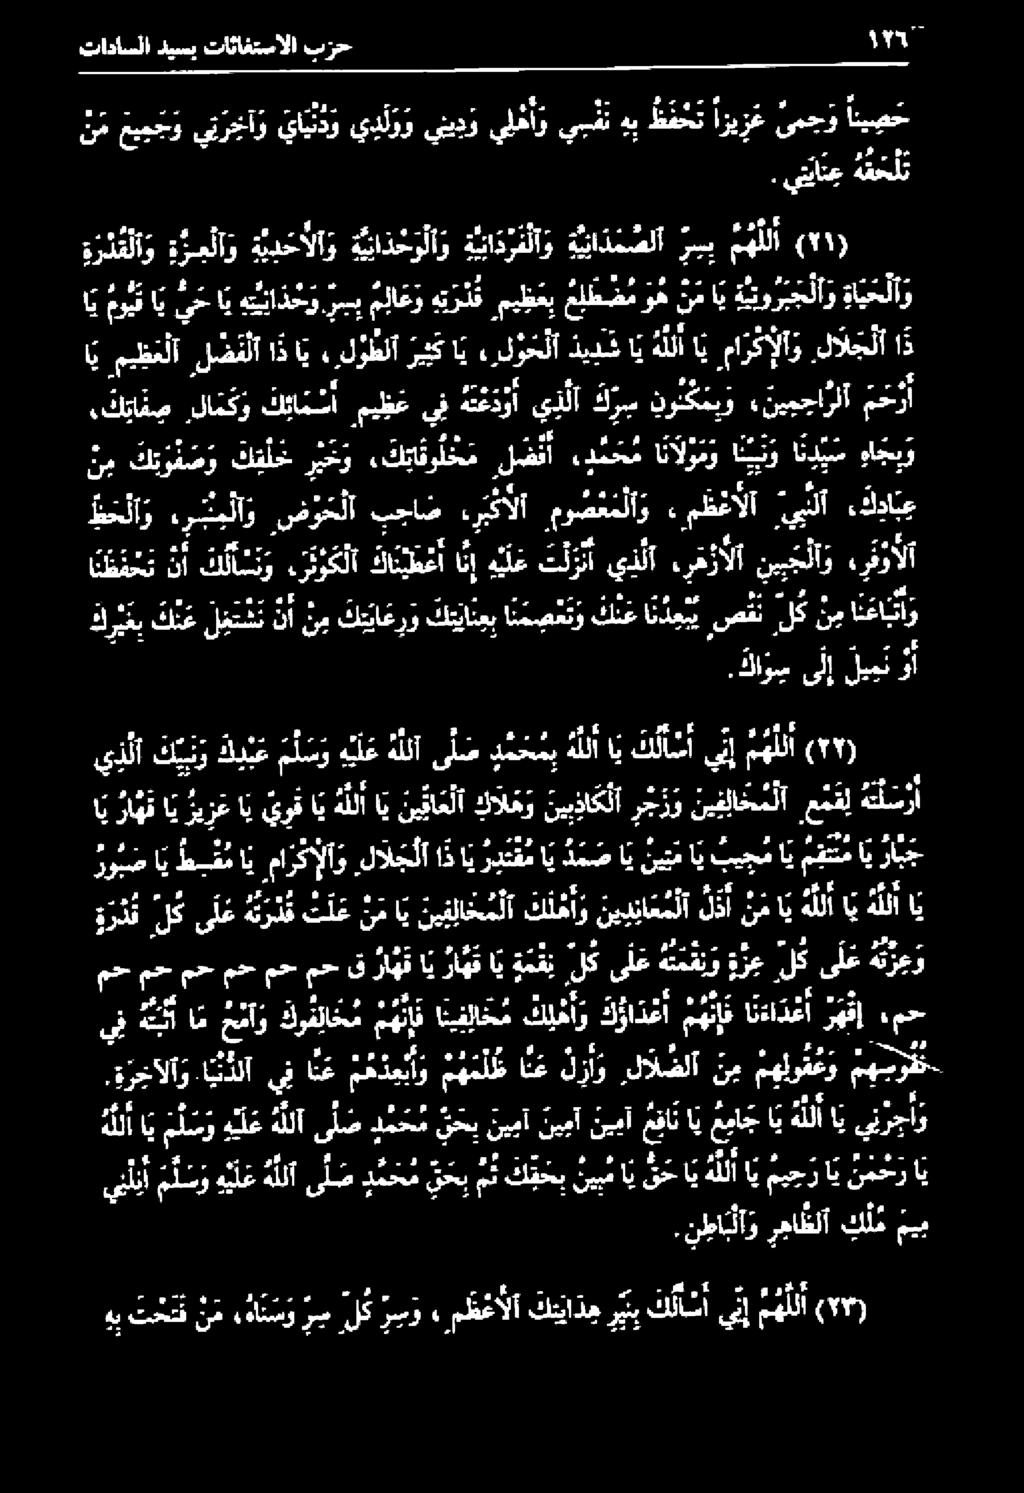 ١٢٦ حزب الاستغاثات بسيد السادات
حَصِيناً وَحِمىً عَزِيزاً تَحْفَظُ بِهِ نَفْسِي وَأَهْلِي وَدِينِي وَوَلَدِي وَدُنْيَايَ وَآخِرَتِي وَجَمِيعَ مَنْ
تَلْحَقُهُ عِنَايَتِي.
(٢١) أَللَّهُمَّ بِسِرِّ ٱلصَّمَدَانِيَّةِ وَٱلْفَرْدَانِيَّةِ وَٱلْوَحْدَانِيَّةِ وَٱلْأَحَدِيَّةِ وَٱلْعِزَّةِ وَٱلْقُدْرَةِ
وَٱلْحَيَاةِ وَٱلْجَبَرُوتِيَّةِ يَا مَنْ هُوَ مُضْطَلِعٌ بِعَظِيمِ قُدْرَتِهِ وَعَالِمٌ بِسِرِّ وَحْدَانِيَّتِهِ يَا حَيُّ يَا قَيُّومُ يَا
ذَا ٱلْجَلَالِ وَٱلْإِكْرَامِ يَا أَللَّهُ يَا شَدِيدَ ٱلْحَوْلِ، يَا كَثِيرَ ٱلطَّوْلِ، يَا ذَا ٱلْفَضْلِ ٱلْعَظِيمِ يَا
أَرْحَمَ ٱلرَّاحِمِينَ، وَبِمَكْنُونِ سِرِّكَ ٱلَّذِي أَوْدَعْتَهُ فِي عَظِيمِ أَسْمَائِكَ وَكَمَالِ صِفَاتِكَ،
وَبِجَاهِ سَيِّدِنَا وَنَبِيِّنَا وَمَوْلَانَا مُحَمَّدٍ، أَفْضَلِ مَخْلُوقَاتِكَ، وَخَيْرِ خَلْقِكَ وَصَفْوَتِكَ مِنْ
عِبَادِكَ، ٱلنَّبِيِّ ٱلْأَعْظَمِ، وَٱلْمَعْصُومِ ٱلْأَكْبَرِ، صَاحِبِ ٱلْحَوْضِ وَٱلْمِنْبَرِ، وَٱلْحَظِّ
ٱلْأَوْفَرِ، وَٱلْجَبِينِ ٱلْأَزْهَرِ، ٱلَّذِي أَنْزَلْتَ عَلَيْهِ إِنَّا أَعْطَيْنَاكَ ٱلْكَوْثَرَ، وَنَسْأَلُكَ أَنْ تَحْفَظَنَا
وَأَتْبَاعَنَا مِنْ كُلِّ نَقْصٍ يُبْعِدُنَا عَنْكَ وَتَعْصِمَنَا بِعِنَايَتِكَ وَرِعَايَتِكَ مِنْ أَنْ نَشْتَغِلَ عَنْكَ بِغَيْرِكَ
أَوْ نَمِيلَ إِلَى سِوَاكَ.
(٢٢) أَللَّهُمَّ إِنِّي أَسْأَلُكَ يَا أَللَّهُ بِمُحَمَّدٍ صَلَّى ٱللَّهُ عَلَيْهِ وَسَلَّمَ عَبْدِكَ وَنَبِيِّكَ ٱلَّذِي
أَرْسَلْتَهُ لِقَمْعِ ٱلْمُخَالِفِينَ وَزَجْرِ ٱلْكَاذِبِينَ وَهَلَاكِ ٱلْعَاقِّينَ يَا أَللَّهُ يَا قَوِيُّ يَا عَزِيزُ يَا قَهَّارُ يَا
جَبَّارُ يَا مُنْتَقِمُ يَا مُجِيبُ يَا مَتِينُ يَا صَمَدُ يَا مُقْتَدِرُ يَا ذَا ٱلْجَلَالِ وَٱلْإِكْرَامِ يَا مُقْسِطُ يَا صَبُورُ
يَا أَللَّهُ يَا أَللَّهُ يَا مَنْ أَذَلَّ ٱلْمُعَانِدِينَ وَأَهْلَكَ ٱلْمُخَالِفِينَ يَا مَنْ عَلَتْ قُدْرَتُهُ عَلَى كُلِّ قُدْرَةٍ
وَعِزَّتُهُ عَلَى كُلِّ عِزَّةٍ وَنِقْمَتُهُ عَلَى كُلِّ نِقْمَةٍ يَا قَهَّارُ يَا قَهَّارُ ق حم حم حم حم حم حم
حم، إِقْهَرْ أَعْدَاءَنَا فَإِنَّهُمْ أَعْدَاؤُكَ وَأَهْلِكْ مُخَالِفِينَا فَإِنَّهُمْ مُخَالِفُوكَ وَٱمْحُ مَا أَثْبَتَّهُ فِي
نُفُوسِهِمْ وَعُقُولِهِمْ مِنَ ٱلضَّلَالِ وَأَزِلْ عَنَّا ظُلْمَهُمْ وَأَبْعِدْهُمْ عَنَّا فِي ٱلدُّنْيَا وَٱلْآخِرَةِ.
وَأَجِرْنِي يَا أَللَّهُ يَا جَامِعُ يَا نَافِعُ آمِينَ آمِينَ آمِينَ بِحَقِّ مُحَمَّدٍ صَلَّى ٱللَّهُ عَلَيْهِ وَسَلَّمَ يَا أَللَّهُ
يَا رَحْمَنُ يَا رَحِيمُ يَا أَللَّهُ يَا حَقُّ يَا مُبِينُ بِحَقِّكَ ثُمَّ بِحَقِّ مُحَمَّدٍ صَلَّى ٱللَّهُ عَلَيْهِ وَسَلَّمَ أَنِلْنِي
مِيمَ مُلْكِ ٱلظَّاهِرِ وَٱلْبَاطِنِ.
(٢٣) أَللَّهُمَّ إِنِّي أَسْأَلُكَ بِنَيِّرِ هِدَايَتِكَ ٱلْأَعْظَمِ، وَسِرِّ كُلِّ سِرٍّ وَسَنَاهُ، مَنْ فَتَحْتَ بِهِ